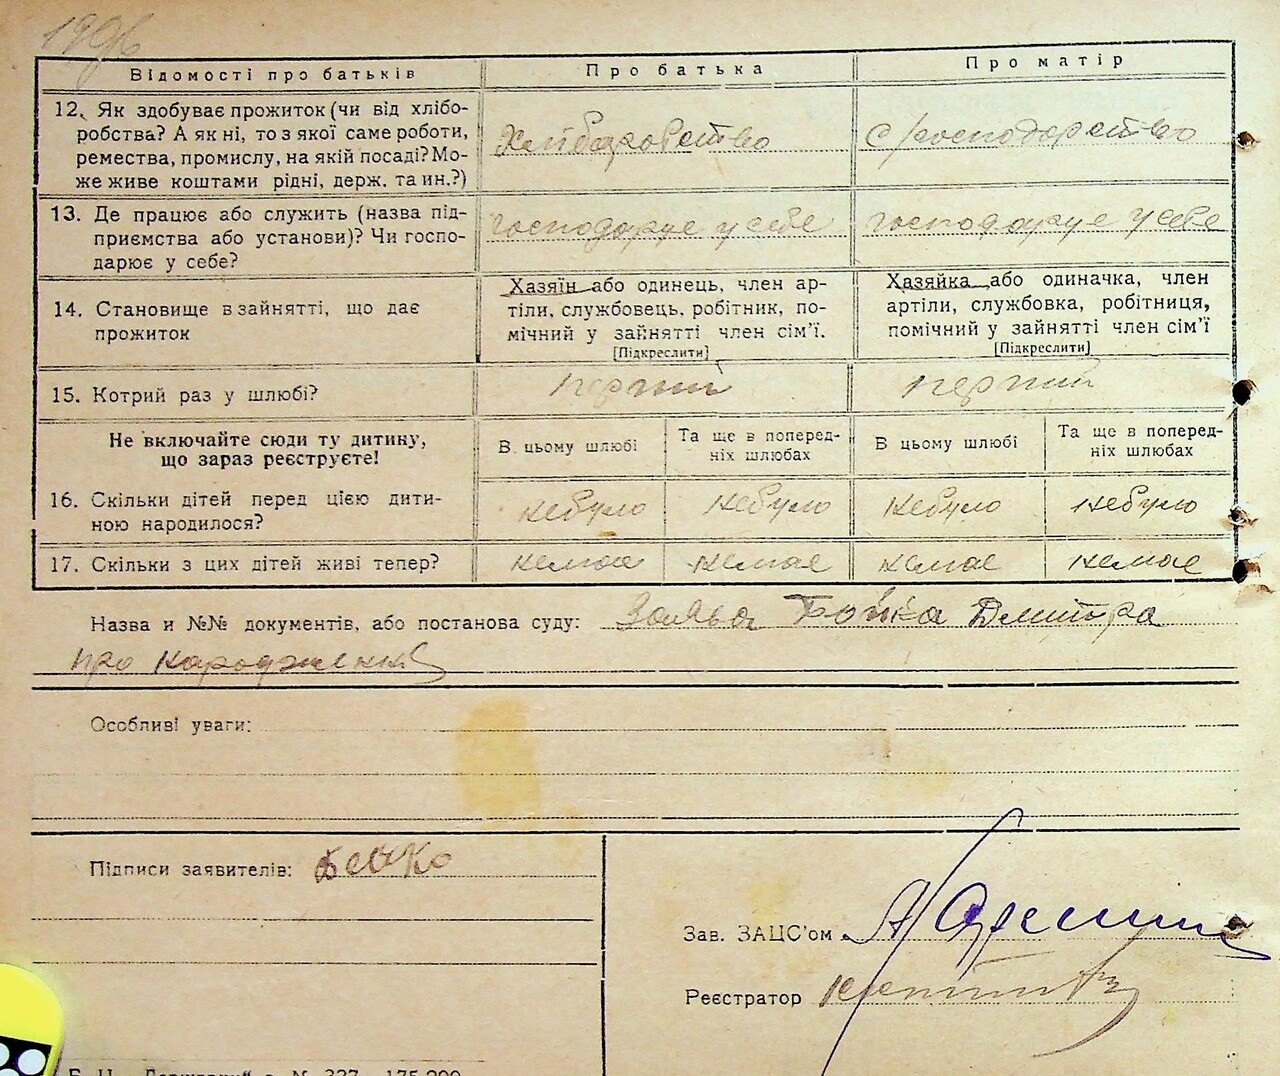 Відомості про батьків
Про батька
Про матір
12. Як здобуває прожиток (чи від хлібо-
робства? А як ні, то з якої саме роботи,
ремества, промислу, на якій посаді? Мо-
же живе коштами рідні, держ. та ин.?)
Хліборобство
с/господарство
13. Де працює або служить (назва під-
приємства або установи)? Чи госпо-
дарює у себе?
господарує у себе
господарує у себе
14. Становище в зайнятті, що дає
прожиток
Хазяїн або одинець, член ар-
тіли, службовець, робітник, по-
мічний у зайнятті член сім'ї.
[Підкреслити]
Хазяйка або одиначка, член
артіли, службовка, робітниця,
помічний у зайнятті член сім'ї
[Підкреслити]
15. Котрий раз у шлюбі?
перший
перший
Не включайте сюди ту дитину,
що зараз реєструєте!
В цьому шлюбі
Та ще в поперед-
ніх шлюбах
В цьому шлюбі
Та ще в поперед-
ніх шлюбах
16. Скільки дітей перед цією дити-
ною народилося?
небуло
небуло
небуло
небуло
17. Скільки з цих дітей живі тепер?
немає
немає
немає
немає
Назва и №№ документів, або постанова суду: Заява Бойка Дмитра
про народження
Особливі уваги:
Підписи заявителів: Бойко
Зав. ЗАЦС'ом
Реєстратор